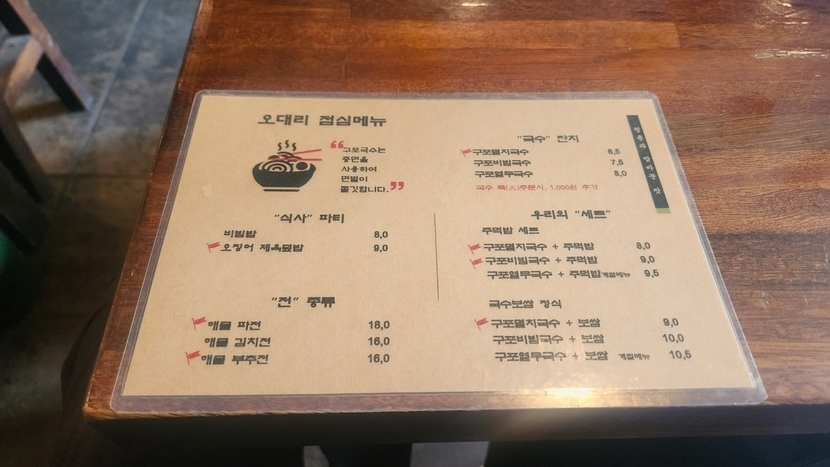 오대리 점심메뉴
“구포국수는
중면을
사용하여
면발이
쫄깃합니다.”
“식사” 파티
비빔밥 8,0
오징어 제육덮밥 9,0
“전” 종류
해물 파전 18,0
해물 김치전 16,0
해물 부추전 16,0
“국수” 잔치
구포멸치국수 6,5
구포비빔국수 7,5
구포열무국수 8,0
국수 특(大)주문시, 1,000원 추가
우리의 “세트”
주먹밥 세트
구포멸치국수 + 주먹밥 8,0
구포비빔국수 + 주먹밥 9,0
구포열무국수 + 주먹밥 계절메뉴 9,5
국수보쌈 정식
구포멸치국수 + 보쌈 9,0
구포비빔국수 + 보쌈 10,0
구포열무국수 + 보쌈 계절메뉴 10,5